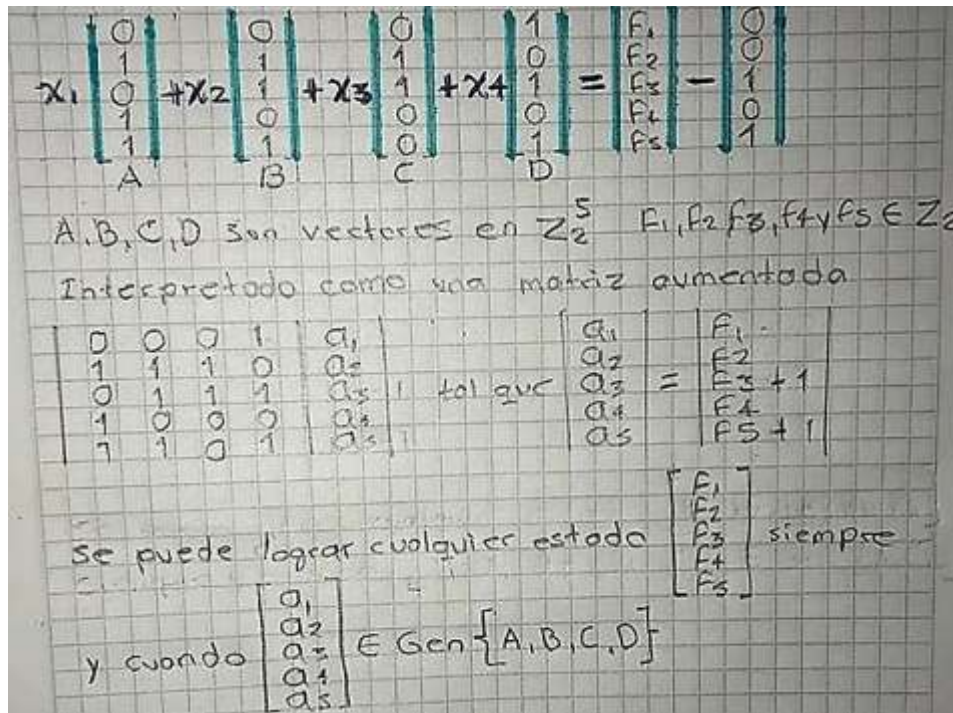 x1 [0 1 0 1 1] + x2 [0 1 1 0 1] + x3 [0 1 1 0 0] + x4 [1 0 1 0 1] = [F1 F2 F3 F4 F5] - [0 0 1 0 1]
A B C D
A, B, C, D son vectores en Z2^5 F1, F2 f3, f4 y f5 ∈ Z2
Interpretado como una matriz aumentada
0 0 0 1 | a1
1 1 1 0 | a2
0 1 1 1 | a3
1 0 0 0 | a4
1 1 0 1 | a5
tal que [a1 a2 a3 a4 a5] = [F1 F2 F3+1 F4 F5+1]
se puede lograr cualquier estado [F1 F2 F3 F4 F5] siempre
y cuando [a1 a2 a3 a4 a5] ∈ Gen {A, B, C, D}